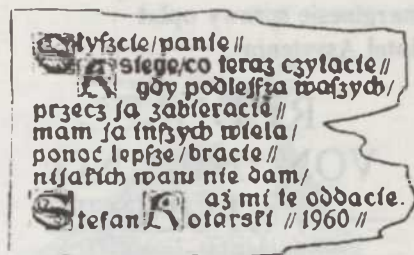 Słyſzcie/panie//
Ksiegę/co teraz czytacie//
A gdy podlejſza waſzych/
przecz ja zabieracie//
mam ja inſzych wiela/
ponoć lepſze/bracie//
nijakich wam nie dam/
aż mi tę oddacie.
Stefan Kotarski // 1960 //